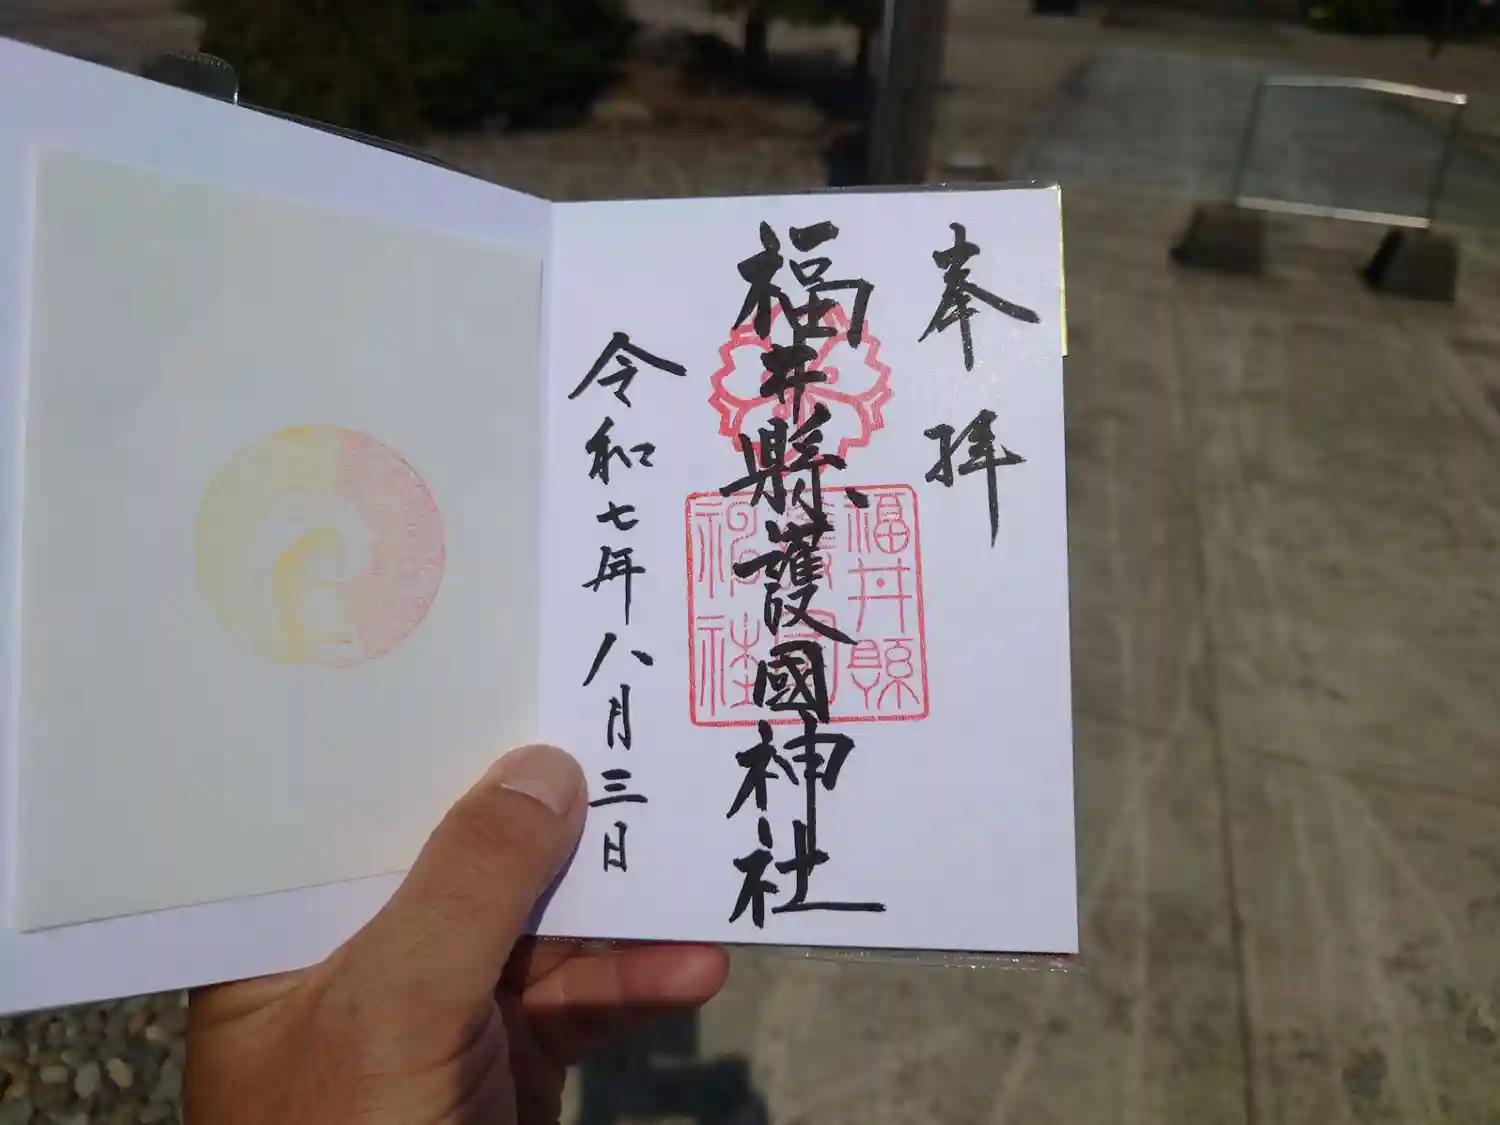 奉拝
福井縣護國神社
令和七年八月三日
福井縣
護國
神社